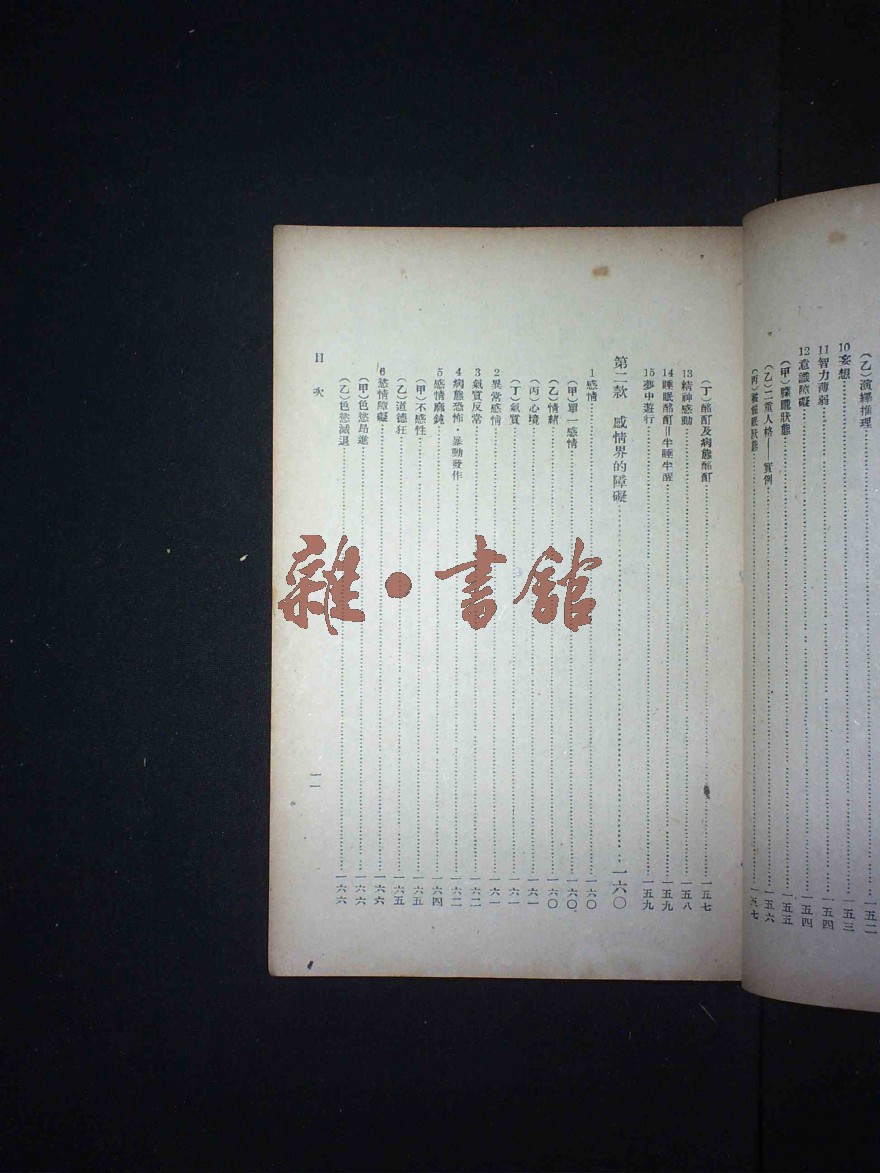 (乙)演繹推理……一五二
10妄想……一五三
11智力薄弱……一五四
12意識障礙……一五四
(甲)朦朧狀態……一五五
(乙)二重人格——實例……一五六
(丙)被催眠狀態……一五七
(丁)酩酊及病態酩酊……一五七
13精神感動……一五八
14睡眠酩酊=半睡半醒……一五九
15夢中遊行……一五九
第二款 感情界的障礙……一六〇
1感情……一六〇
(甲)單一感情……一六〇
(乙)情緒……一六〇
(丙)心境……一六一
(丁)氣質……一六一
2異常感情……一六一
3氣質反常……一六二
4病態恐怖·暴動發作……一六二
5感情麻鈍……一六四
(甲)不感性……一六五
(乙)道德狂……一六五
6慾情障礙……一六六
(甲)色慾昂進……一六六
(乙)色慾減退……一六六
目次
一一
雜·書館